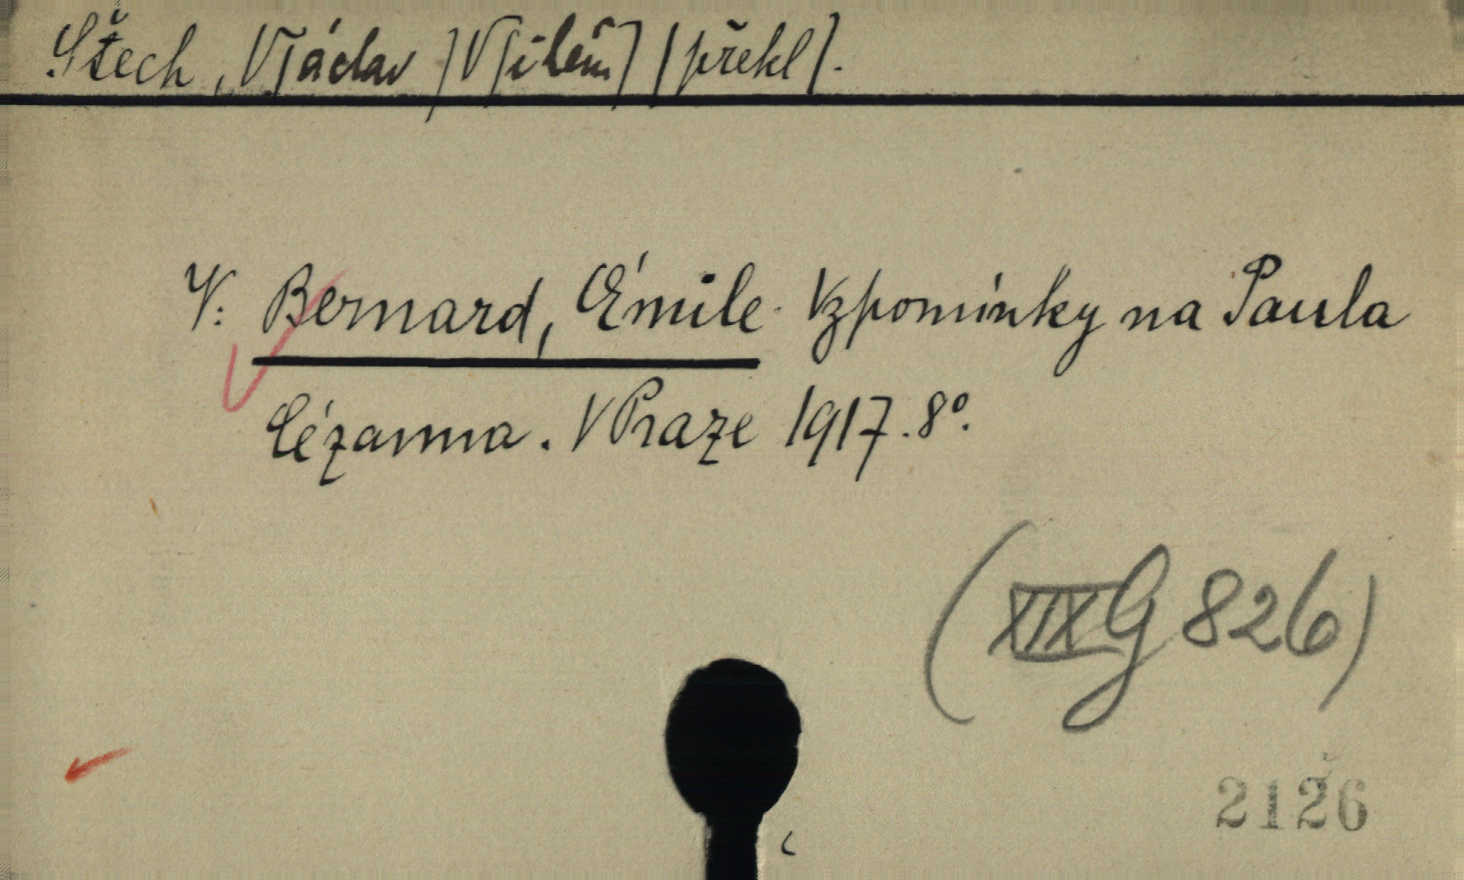 Štech, V[áclav] V[ilém] (překl).
V: Bernard, Émile. Vzpomínky na Paula
Cézanna. V Praze 1917. 8º.
(XIX G 826)
2126